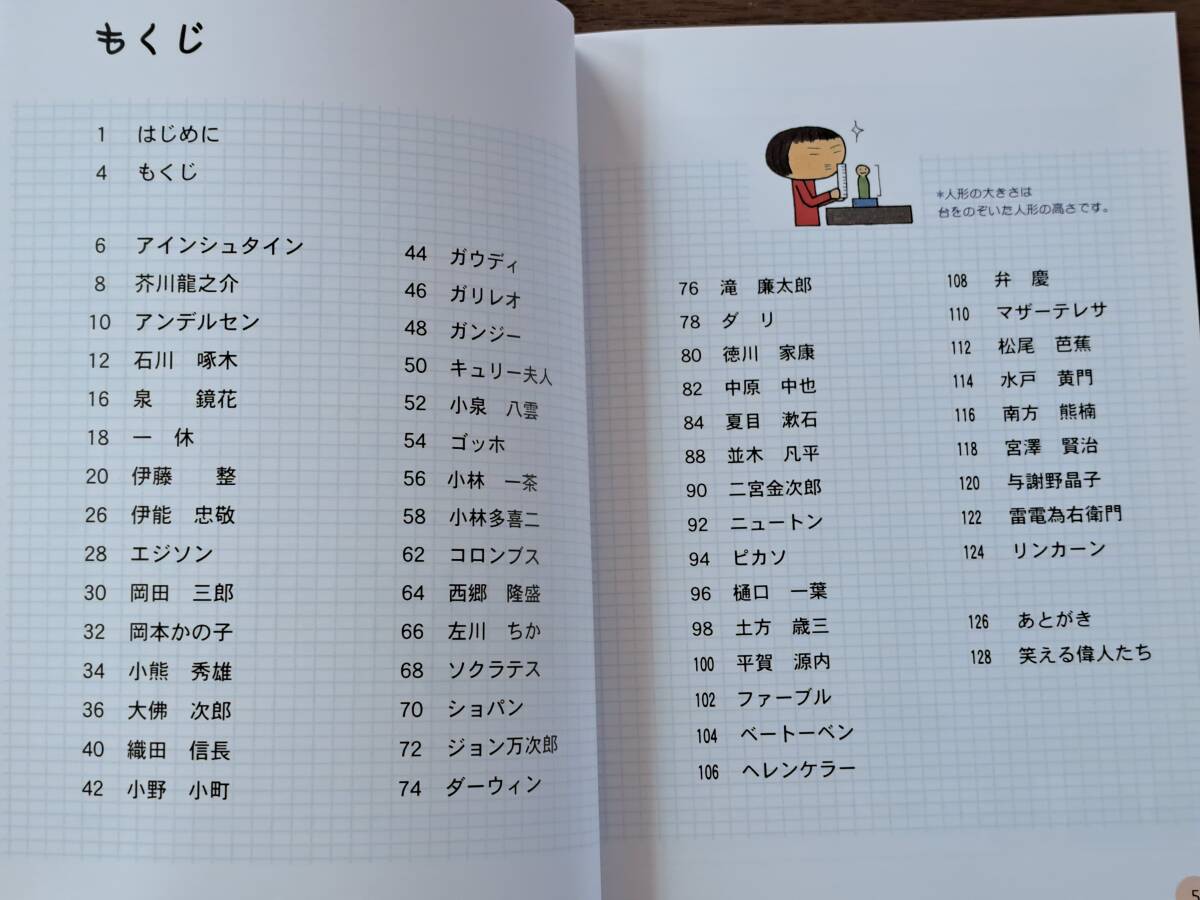 もくじ
1 はじめに
4 もくじ
6 アインシュタイン
8 芥川龍之介
10 アンデルセン
12 石川 啄木
16 泉 鏡花
18 一 休
20 伊藤 整
26 伊能 忠敬
28 エジソン
30 岡田 三郎
32 岡本かの子
34 小熊 秀雄
36 大佛 次郎
40 織田 信長
42 小野 小町
44 ガウディ
46 ガリレオ
48 ガンジー
50 キュリー夫人
52 小泉 八雲
54 ゴッホ
56 小林 一茶
58 小林多喜二
62 コロンブス
64 西郷 隆盛
66 左川 ちか
68 ソクラテス
70 ショパン
72 ジョン万次郎
74 ダーウィン
*人形の大きさは
台をのぞいた人形の高さです。
76 滝 廉太郎
78 ダ リ
80 徳川 家康
82 中原 中也
84 夏目 漱石
88 並木 凡平
90 二宮金次郎
92 ニュートン
94 ピカソ
96 樋口 一葉
98 土方 歳三
100 平賀 源内
102 ファーブル
104 ベートーベン
106 ヘレンケラー
108 弁 慶
110 マザーテレサ
112 松尾 芭蕉
114 水戸 黄門
116 南方 熊楠
118 宮澤 賢治
120 与謝野晶子
122 雷電為右衛門
124 リンカーン
126 あとがき
128 笑える偉人たち
5